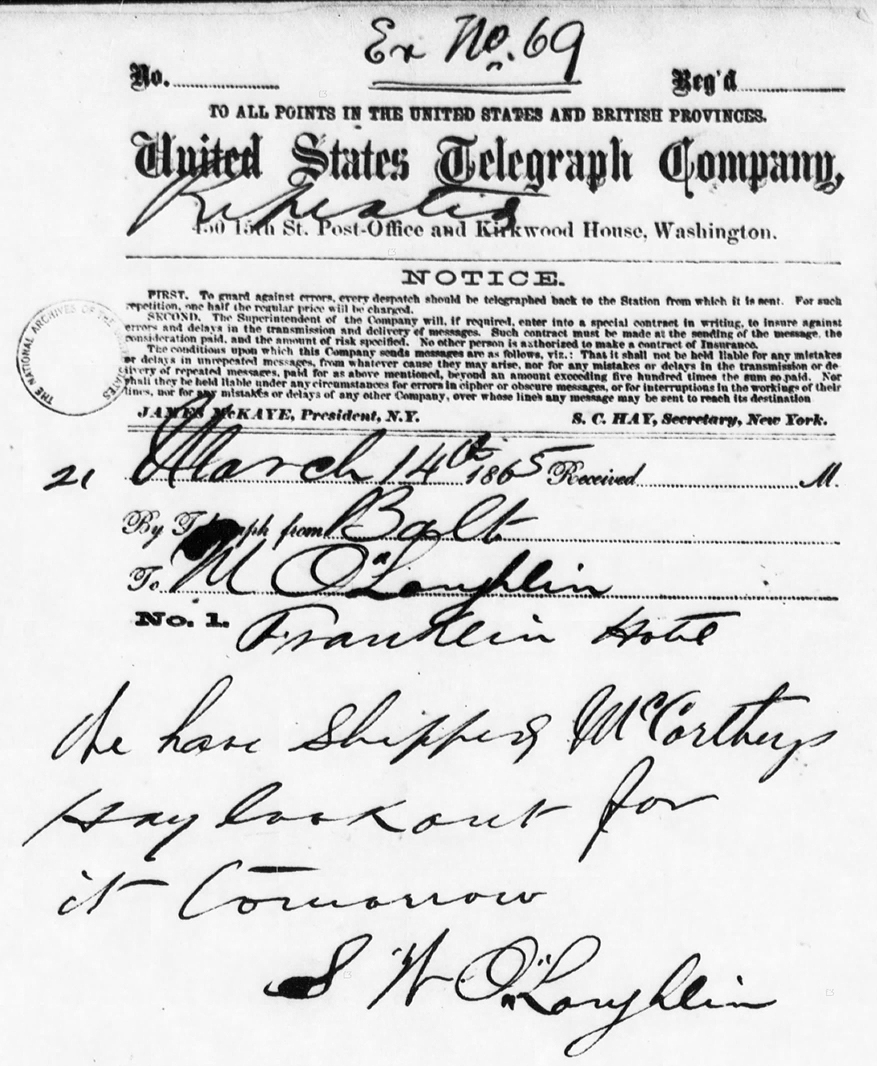 Ex No. 69
No. Rec'd
TO ALL POINTS IN THE UNITED STATES AND BRITISH PROVINCES.
United States Telegraph Company,
Repeated
450 15th St. Post-Office and Kirkwood House, Washington.
NOTICE.
FIRST. To guard against errors, every despatch should be telegraphed back to the Station from which it is sent. For such
repetition, one half the regular price will be charged.
SECOND. The Superintendent of the Company will, if required, enter into a special contract in writing, to insure against
errors and delays in the transmission and delivery of messages. Such contract must be made at the sending of the message, the
consideration paid, and the amount of risk specified. No other person is authorized to make a contract of Insurance.
The conditions upon which this Company sends messages are as follows, viz.: That it shall not be held liable for any mistakes
or delays in unrepeated messages, from whatever cause they may arise, nor for any mistakes or delays in the transmission or de-
livery of repeated messages, paid for as above mentioned, beyond an amount exceeding five hundred times the sum so paid. Nor
shall they be held liable under any circumstances for errors in cipher or obscure messages, or for interruptions in the workings of their
lines, nor for any mistakes or delays of any other Company, over whose lines any message may be sent to reach its destination
JAMES McKAYE, President, N.Y. S. C. HAY, Secretary, New York.
THE NATIONAL ARCHIVES OF THE UNITED STATES
21 March 14th 1865 Received M.
By Telegraph from Balt
To M O"Laughlin
No. 1. Franklin Hotel
We have shipped McCortheys
Hay lookout for
it Tomorrow
S W O"Laughlin